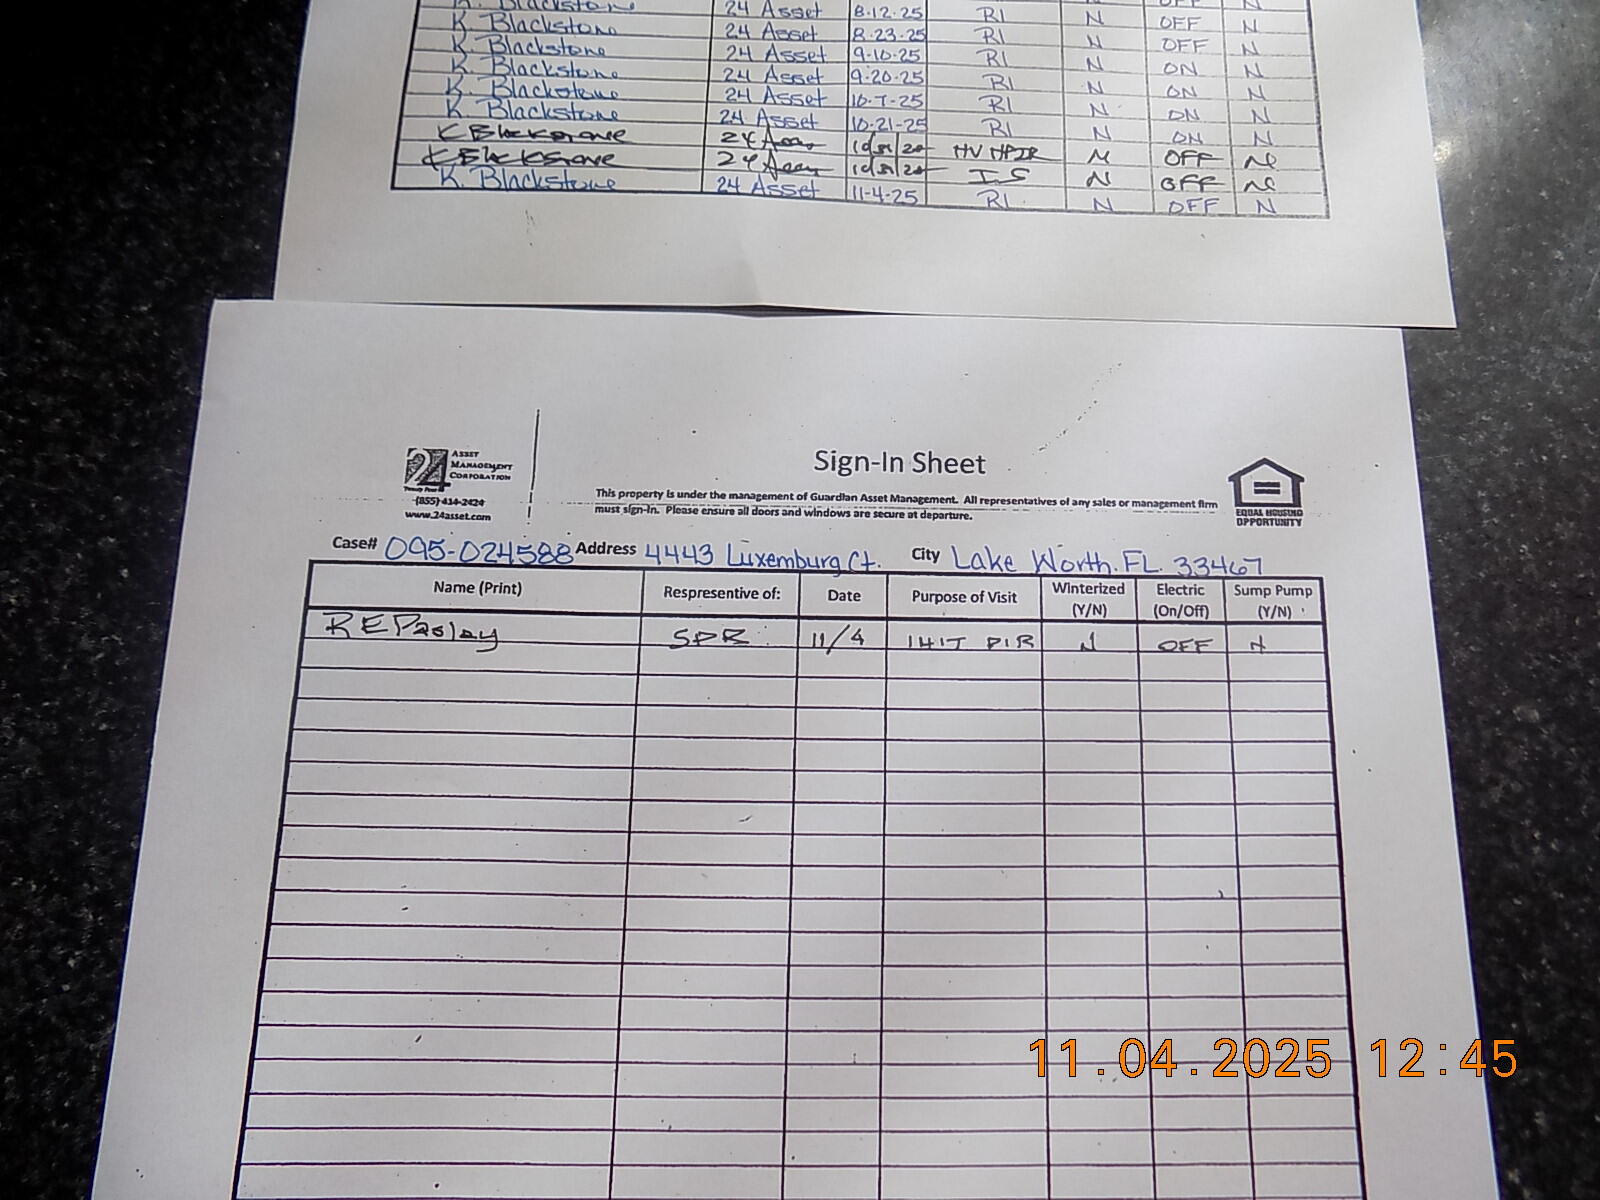 K. Blackstone 24 Asset 8.12.25 RI N OFF N
K. Blackstone 24 Asset 8.23.25 RI N OFF N
K. Blackstone 24 Asset 9.10.25 RI N ON N
K. Blackstone 24 Asset 9.20.25 RI N ON N
K. Blackstone 24 Asset 10.7.25 RI N ON N
K. Blackstone 24 Asset 10.21.25 RI N ON N
K Blackstone 24 HV N OFF
K Blackstone 24 IS N OFF
K. Blackstone 24 Asset 11-4-25 RI N OFF N
24 ASSET
MANAGEMENT
CORPORATION
Twenty Four
(855) 414-2424
www.24asset.com
Sign-In Sheet
This property is under the management of Guardian Asset Management. All representatives of any sales or management firm
must sign-in. Please ensure all doors and windows are secure at departure.
EQUAL HOUSING
OPPORTUNITY
Case# 095-024588 Address 4443 Luxemburg Ct. City Lake Worth. FL. 33467
Name (Print) Respresentive of: Date Purpose of Visit Winterized (Y/N) Electric (On/Off) Sump Pump (Y/N)
R E Paslay 11/4 PIR N OFF N
11.04.2025 12:45